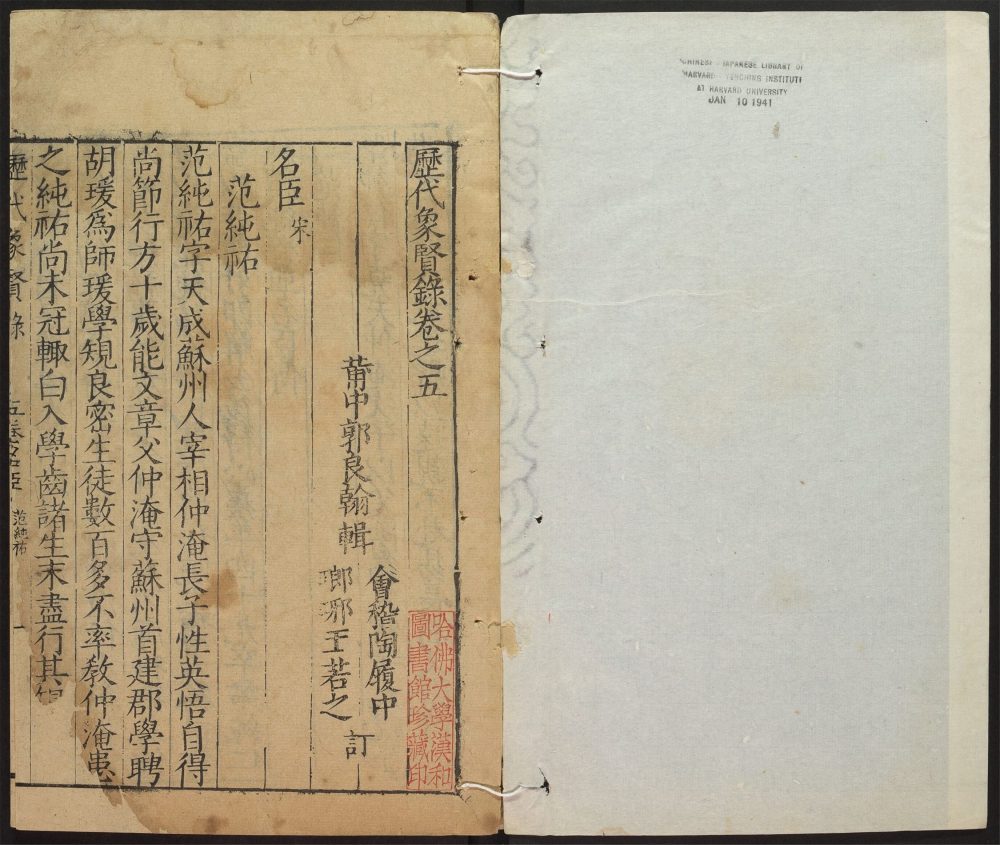 CHINESE - JAPANESE LIBRARY OF
HARVARD - YENCHING INSTITUTE
AT HARVARD UNIVERSITY
JAN 10 1941
歷代象賢錄卷之五
哈佛大學漢和
圖書館珍藏印
會稽陶履中
莆中郭良翰輯
瑯琊王若之
訂
名臣 宋
范純祐
范純祐字天成蘇州人宰相仲淹長子性英悟自得
尚節行方十歲能文章父仲淹守蘇州首建郡學聘
胡瑗爲師瑗學規良密生徒數百多不率教仲淹患
之純祐尚未冠輙白入學齒諸生末盡行其規
歷代象賢錄
五卷名臣 范純祐
一